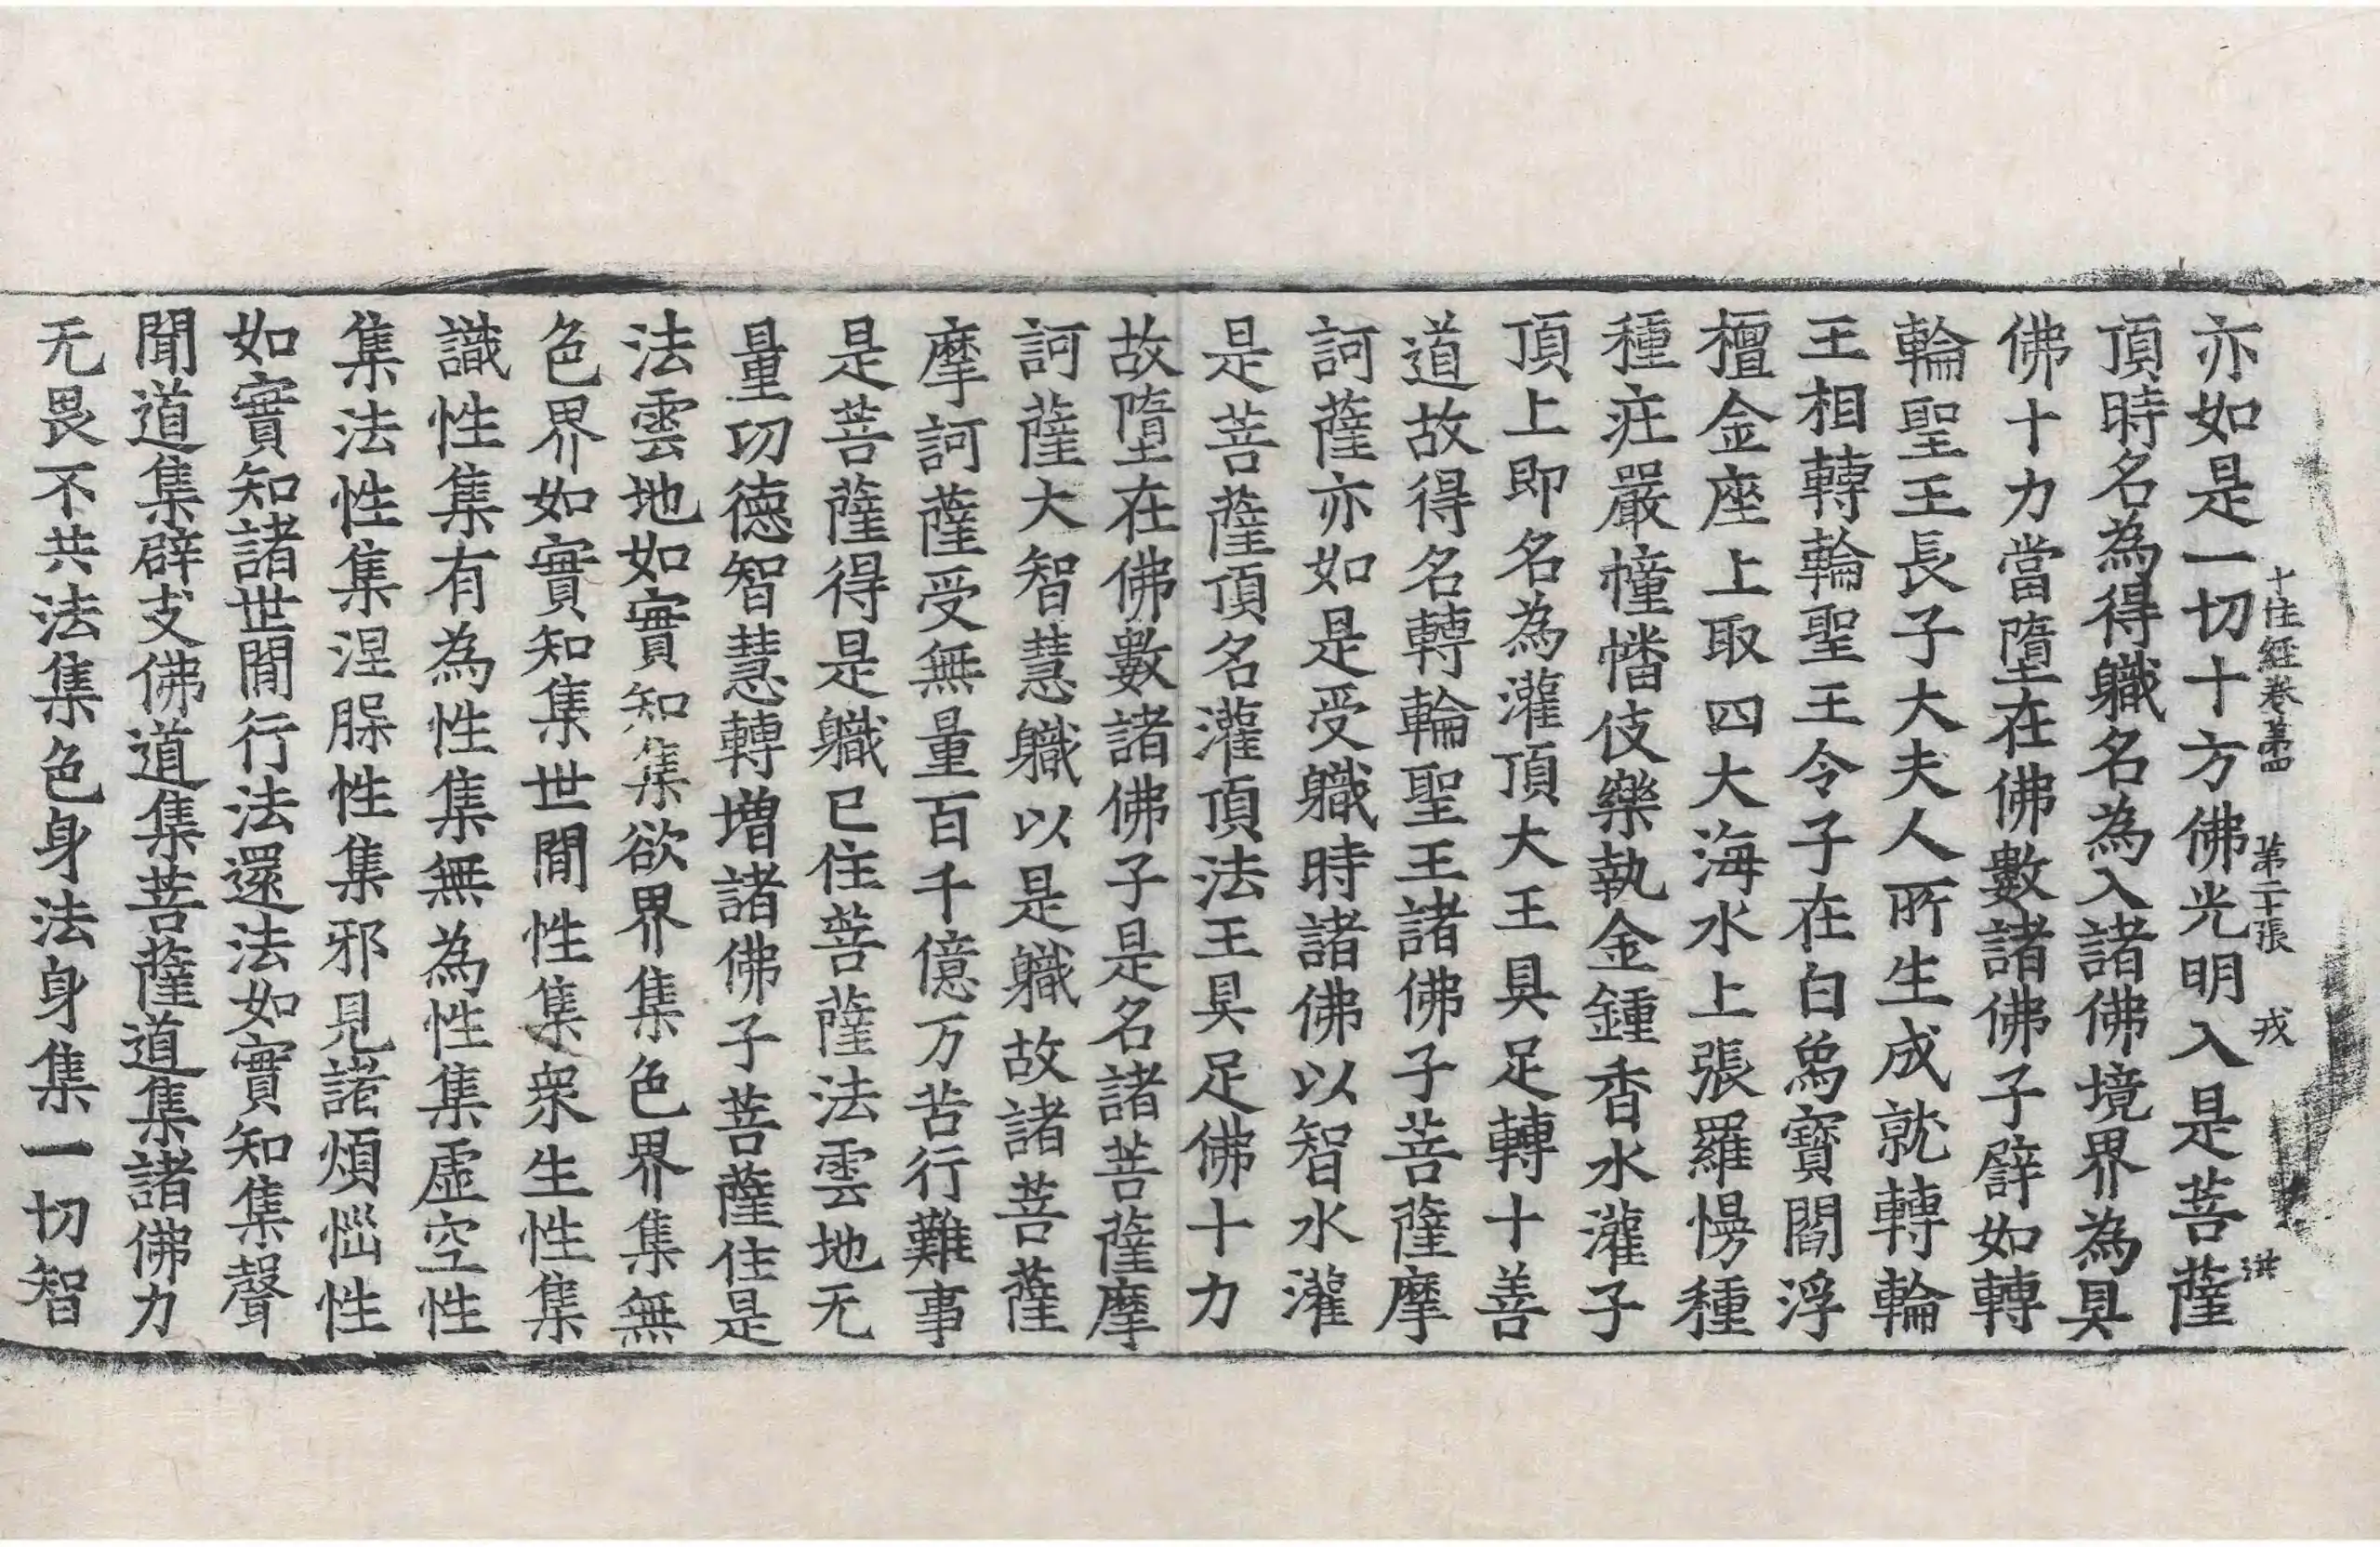 十住経卷苐四　第二十張　戎　洪
亦如是一切十方佛光明入是菩薩
頂時名為得軄名為入諸佛境界為具
佛十力當墮在佛數諸佛子譬如轉
輪聖王長子大夫人所生成就轉輪
王相轉輪聖王令子在白象寶閻浮
檀金座上取四大海水上張羅幔種
種莊嚴幢幡伎樂執金鍾香水灌子
頂上即名為灌頂大王具足轉十善
道故得名轉輪聖王諸佛子菩薩摩
訶薩亦如是受軄時諸佛以智水灌
是菩薩頂名灌頂法王具足佛十力
故墮在佛數諸佛子是名諸菩薩摩
訶薩大智慧軄以是軄故諸菩薩
摩訶薩受無量百千億万苦行難事
是菩薩得是軄已住菩薩法雲地无
量功德智慧轉增諸佛子菩薩住是
法雲地如實知集欲界集色界集無
色界如實知集世間性集衆生性集
識性集有為性集無為性集虛空性
集法性集涅槃性集邪見諸煩惱性
如實知諸世間行法還法如實知集聲
聞道集辟支佛道集菩薩道集諸佛力
无畏不共法集色身法身集一切智